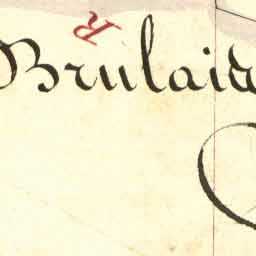 R
Brulaide